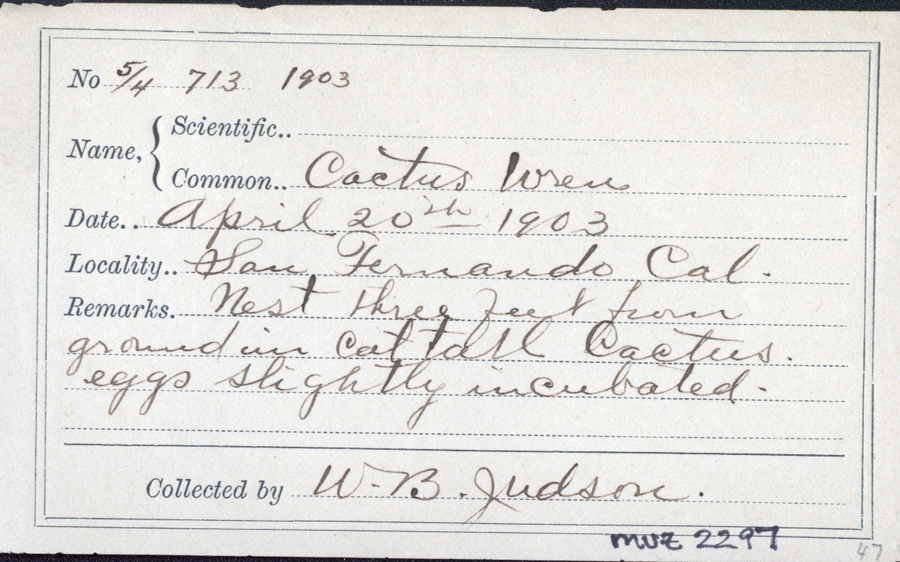 No 5/4 713 1903
Name, Scientific..
Common.. Cactus Wren
Date.. April 20th 1903
Locality.. San Fernando Cal.
Remarks. Nest three feet from
ground in cattall Cactus.
eggs slightly incubated.
Collected by W. B. Judson.
MVZ 2297
47